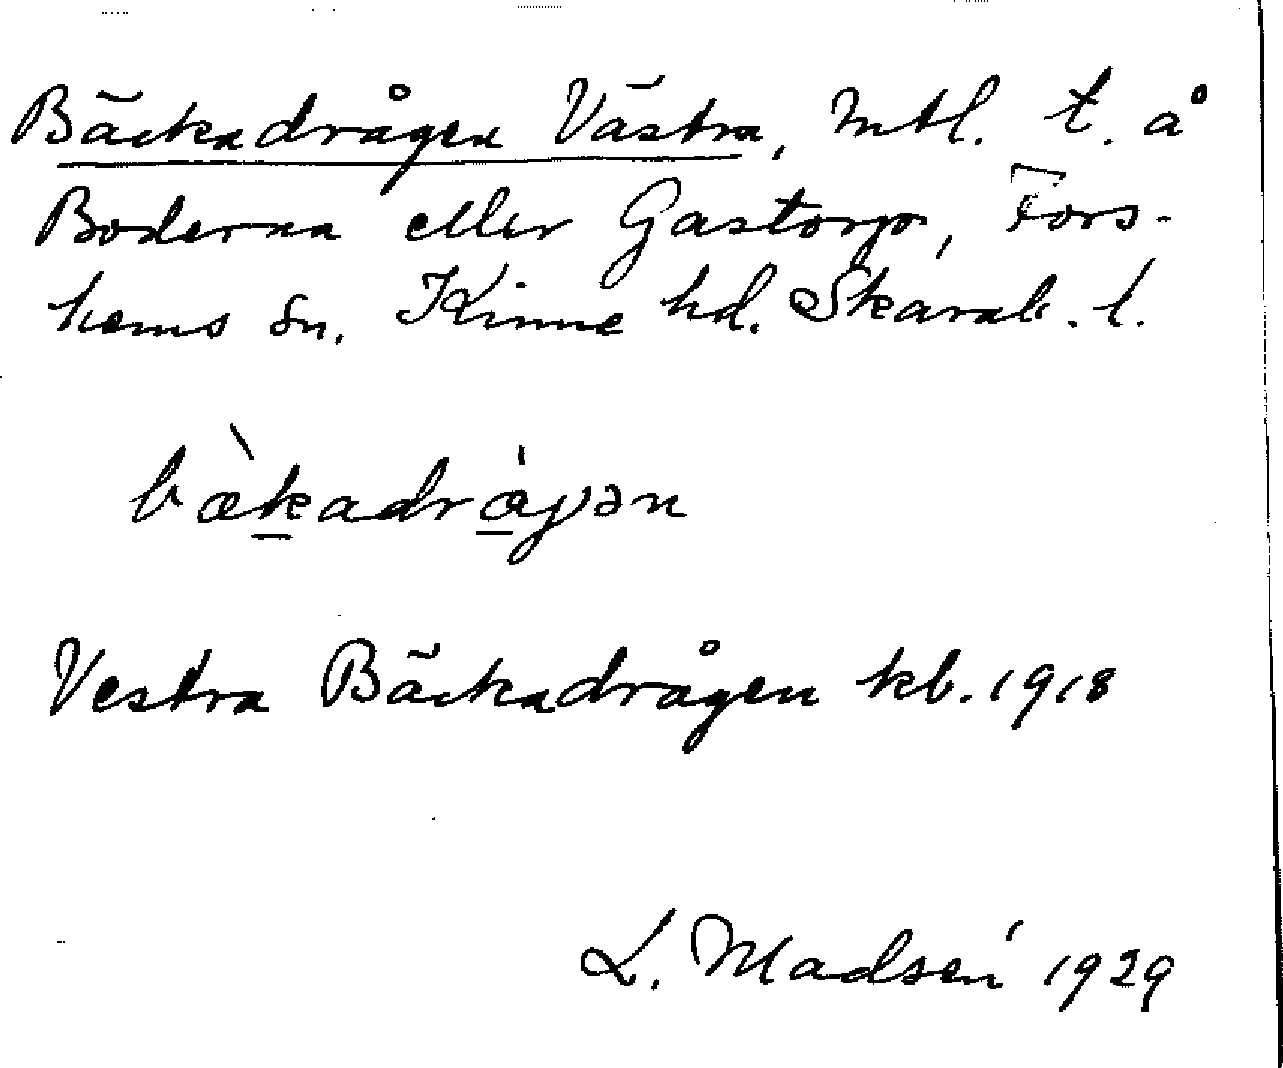 Bäckadrågen Västra, mtl. t. å
Boderna eller Gastorp, Fors-
hems sn. Kinne hd. Skarab. l.
bæ̀kadrågən
Vestra Bäckadrågen kb. 1918
L. Madsén 1929